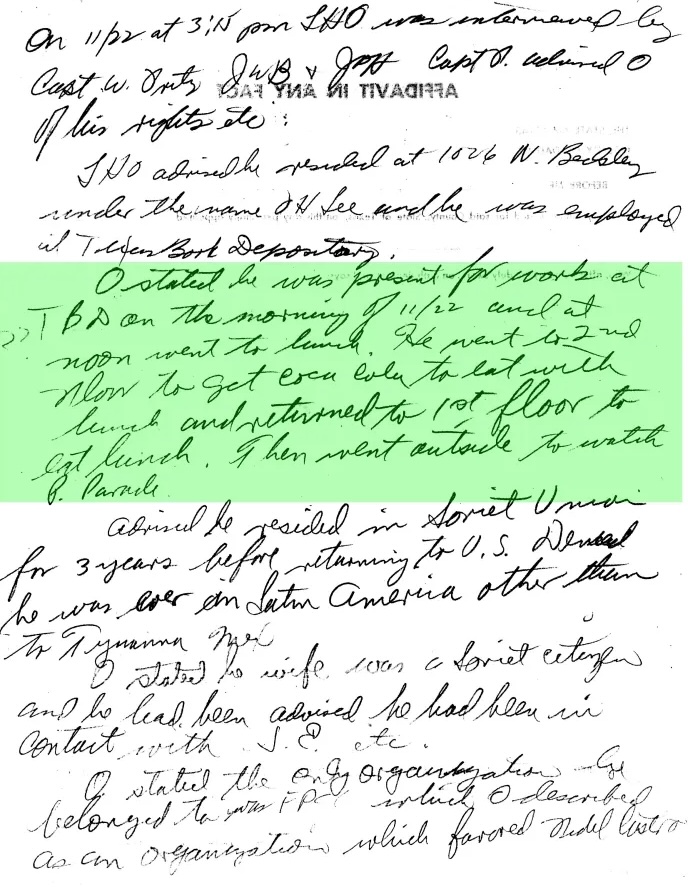 On 11/22 at 3:15 pm LHO was interviewed by
Capt W. Fritz JWB & JPH Capt F. advised O
AFFIDAVIT IN ANY FACT
of his rights etc:
LHO advised he resided at 1026 N. Beckley
BEFORE ME
under the name OH Lee and he was employed
at Texas Book Depository.
O stated he was present for work at
TBD on the morning of 11/22 and at
noon went to lunch. He went to 2nd
floor to get coca cola to eat with
lunch and returned to 1st floor to
eat lunch. Then went outside to watch
P. Parade
advised he resided in Soviet Union
for 3 years before returning to U.S. Denied
he was ever in Latin America other than
to Tijuanna Mex
O stated he wife was a Soviet citizen
and he had been advised he had been in
contact with S.E. etc.
O stated the only organization he
belonged to was FP which O described
as an organization which favored Fidel Castro